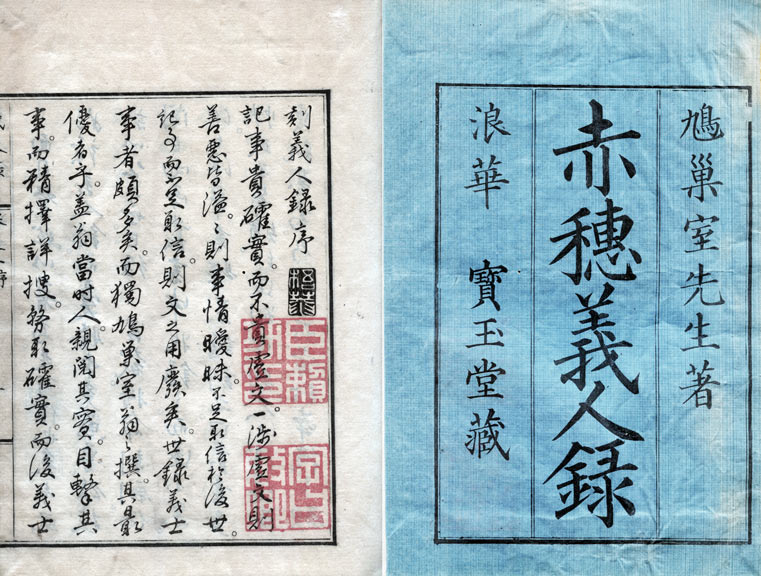 鳩巢室先生著
赤穗義人録
浪華 寶玉堂藏
刻義人録序
記事貴確實。而不貴虛文。一涉虛文則
善惡皆溢。〻則事情曖昧。不足取信於後世。
記事而不足取信。則文之用廢矣。世録義士
事者頗多矣。而獨鳩巢室翁之撰。其最
優者乎。蓋翁當時人。親聞其實。目擊其
事。而精擇詳搜。務取確實。而後義士